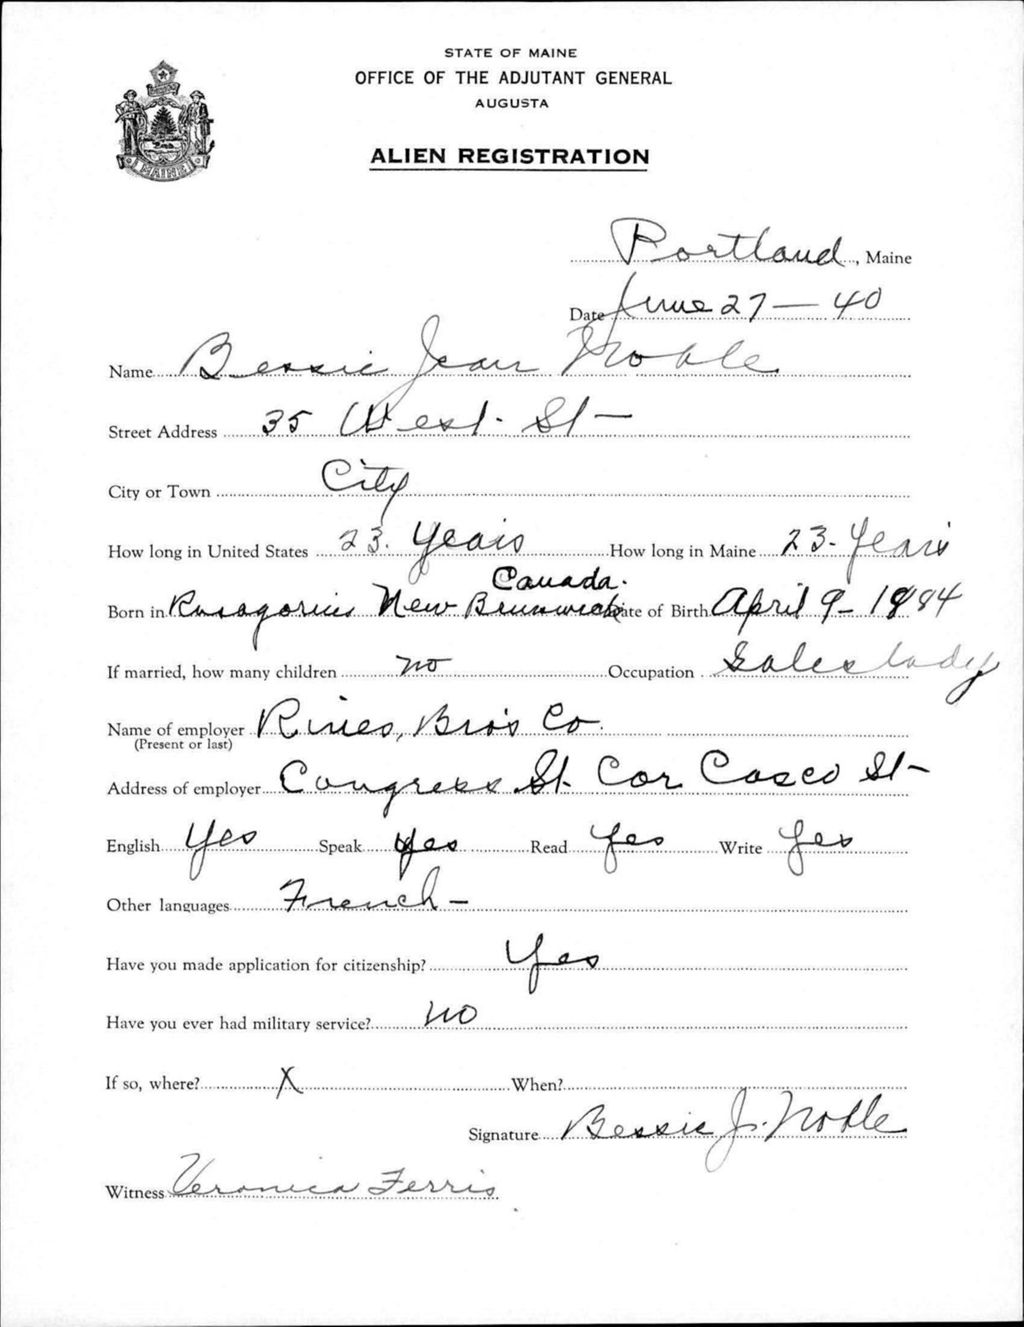 STATE OF MAINE
OFFICE OF THE ADJUTANT GENERAL
AUGUSTA
ALIEN REGISTRATION
MAINE
Portland, Maine
Date June 27 — 40
Name Bessie Jean Noble
Street Address 35 West St —
City or Town City
How long in United States 23. Years How long in Maine 23. Years
Canada.
Born in Rusagornis New Brunswick Date of Birth April 9 - 1884
If married, how many children no Occupation Saleslady
Name of employer Rines, Bro's Co.
(Present or last)
Address of employer Congress St. Cor Casco St —
English Yes Speak yes Read Yes Write Yes
Other languages French —
Have you made application for citizenship? Yes
Have you ever had military service? no
If so, where? X When?
Signature Bessie J. Noble
Witness Veronica Ferris